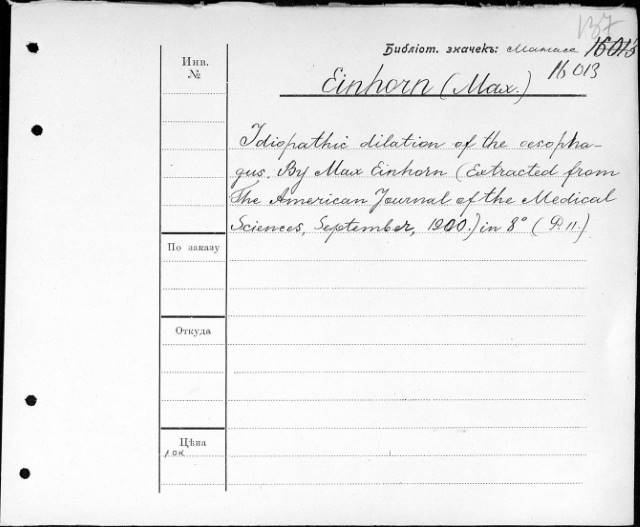 137
Библіот. значекъ: 16013
16013
Инв.
№
Einhorn (Max.)
Idiopathic dilation of the oesopha-
gus. By Max Einhorn (Extracted from
The American Journal of the Medical
Sciences, September, 1900.) in 8° (P. 11.)
По заказу
Откуда
Цѣна
10к